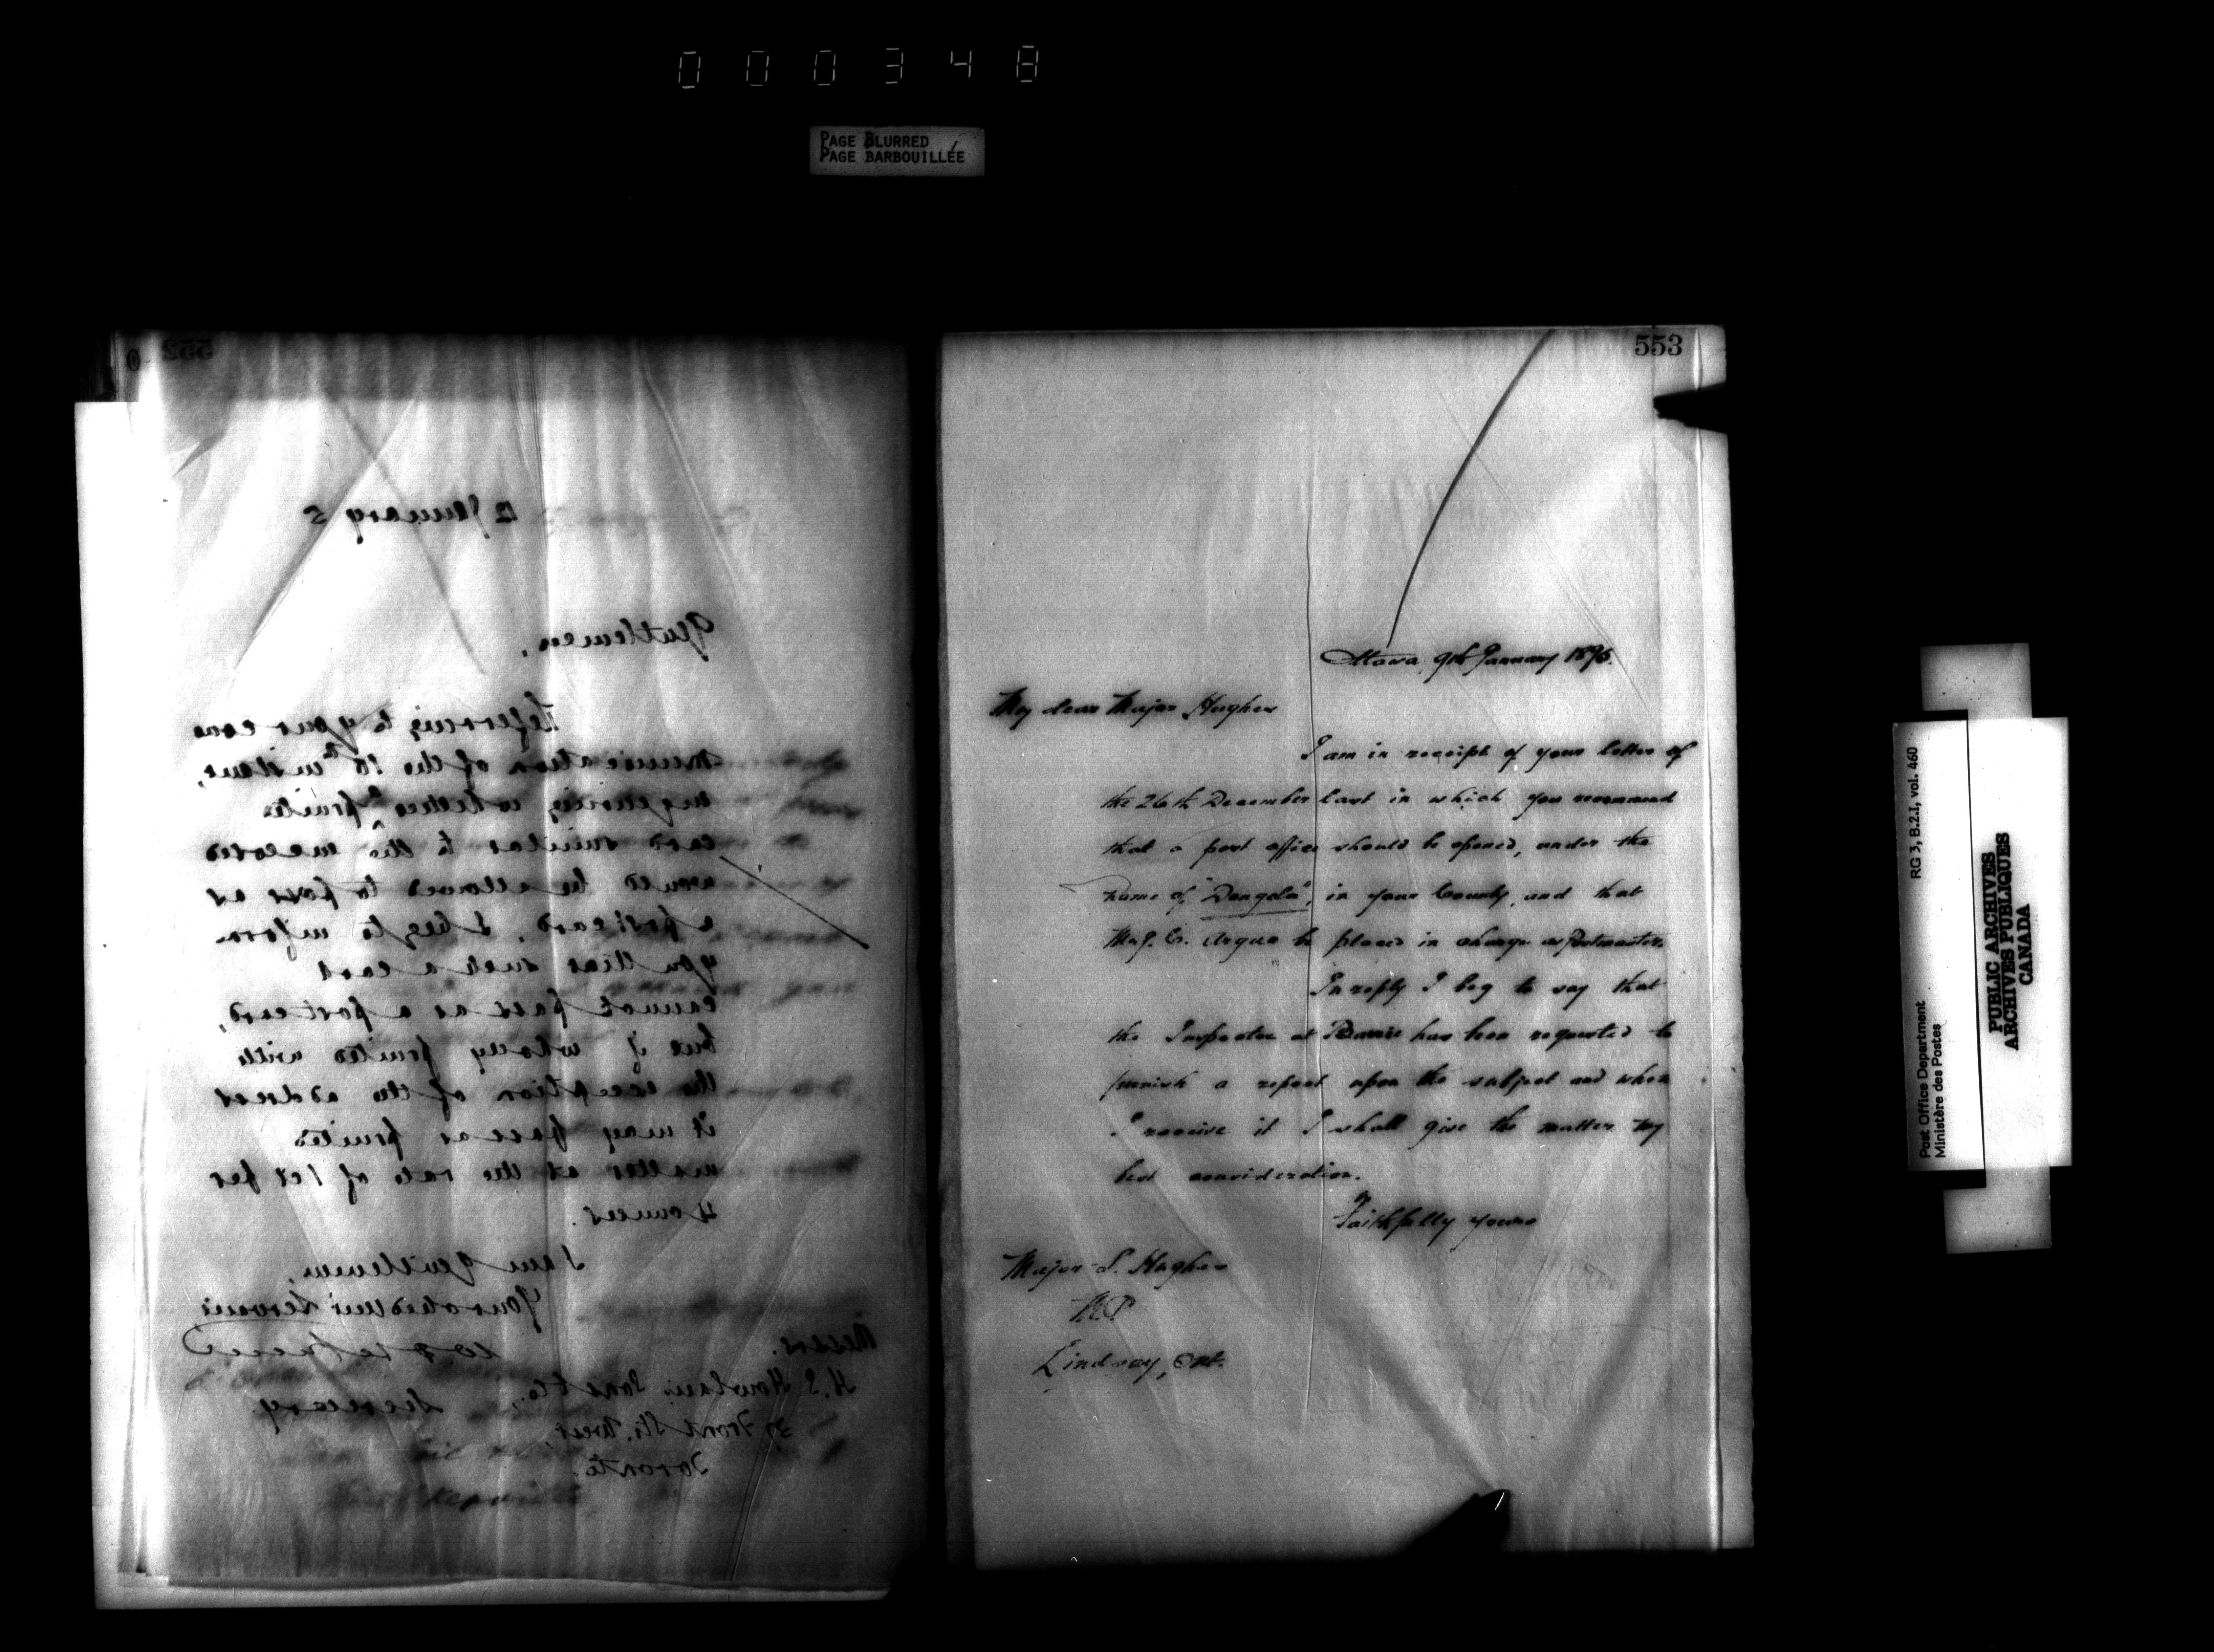 000348
PAGE BLURRED
PAGE BARBOUILLÉE
552
12 January 5
Gentlemen,
Referring to your com
munication of the 10th instant,
inquiring whether a printed
card similar to the enclosed
would be allowed to pass as
a post card, I beg to inform
you that such a card
cannot pass as a post card,
but if wholly printed with
the exception of the address
it may pass as printed
matter at the rate of 1 ct per
4 ounces.
I am Gentlemen,
Your obedient Servant
Secretary.
Messrs.
H. S. Howland Sons & Co.,
37 Front St. West,
Toronto.
553
Ottawa, 9th January 1895.
My dear Major Hughes
I am in receipt of your letter of
the 26th December last in which you recommend
that a post office should be opened, under the
name of "Dongola", in your County, and that
Mr J. G. Argue be placed in charge as Postmaster.
In reply I beg to say that
the Inspector at Barrie has been requested to
furnish a report upon the subject and when
I receive it I shall give the matter my
best consideration.
Faithfully yours
Major S. Hughes
M.P
Lindsay, Ont.
Post Office Department
Ministère des Postes
RG 3, B.2.I, vol. 460
PUBLIC ARCHIVES
ARCHIVES PUBLIQUES
CANADA